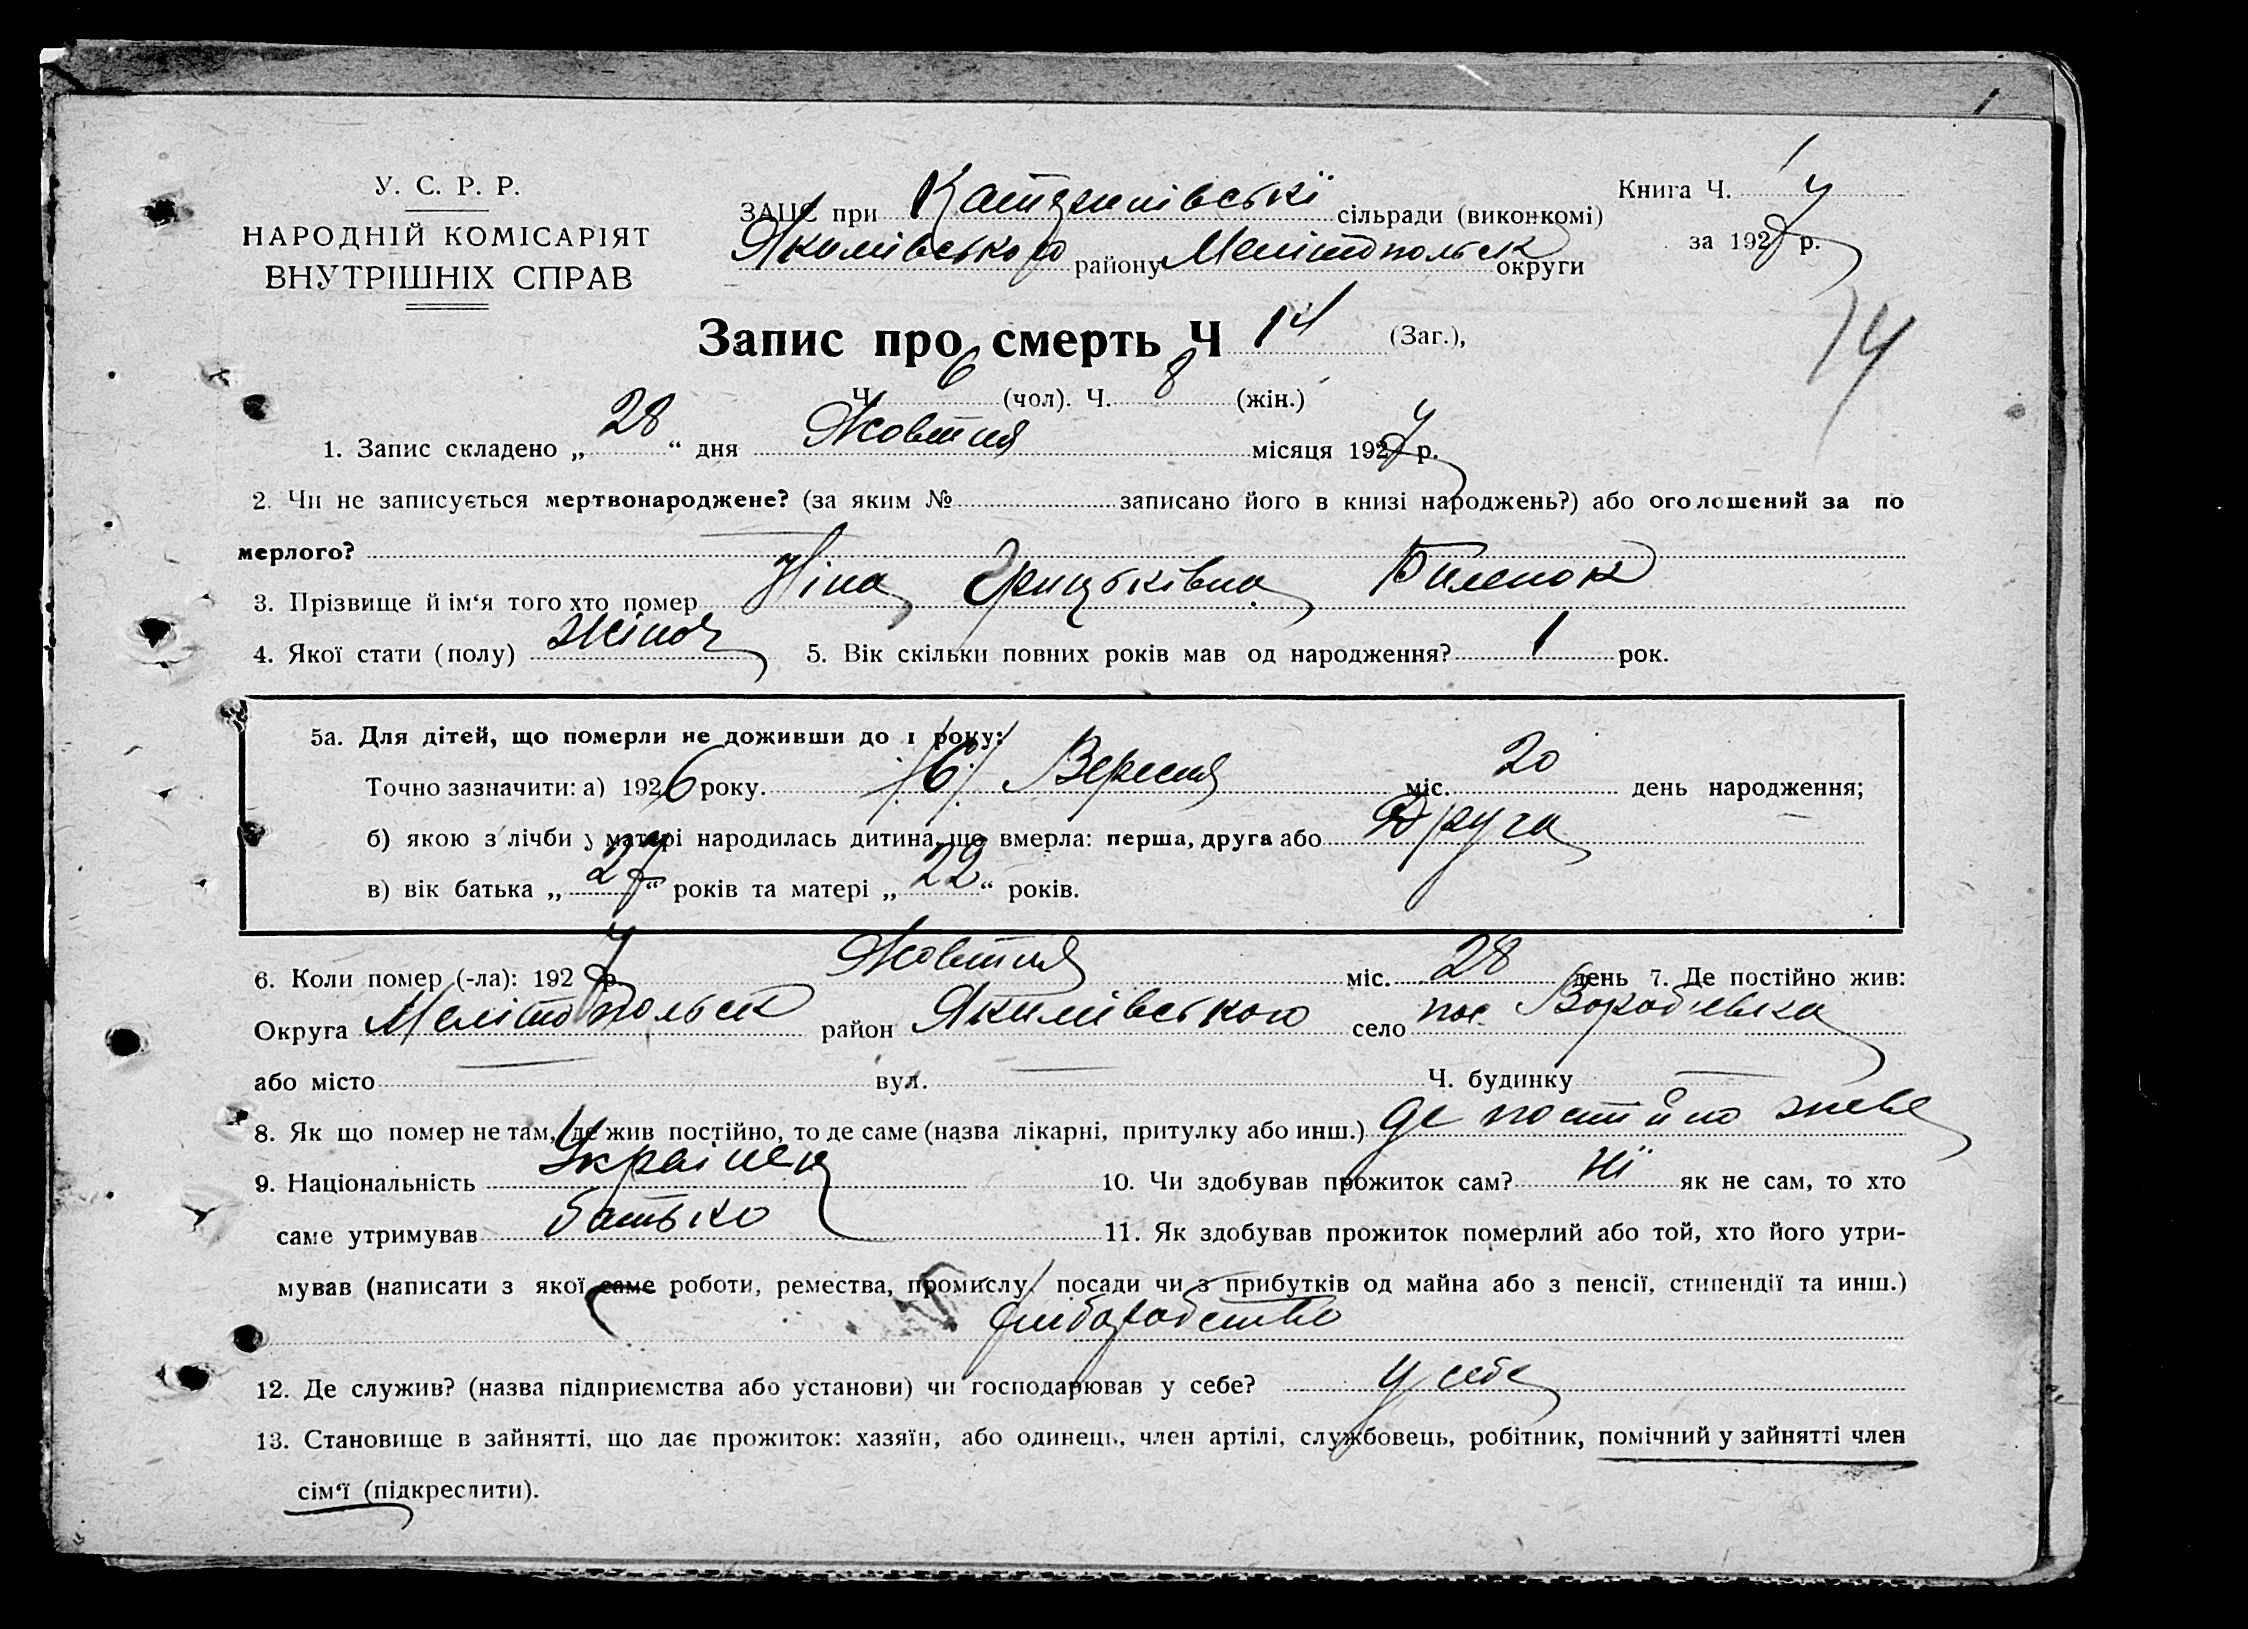 1
У. С. Р. Р.
НАРОДНІЙ КОМІСАРІЯТ
ВНУТРІШНІХ СПРАВ
ЗАПС при Катеринівські сільради (виконкомі)
Якимівського району Мелітопольськ округи
Книга Ч. 1
за 1927 р.
Запис про смерть Ч 14 (Заг.),
14
Ч. 6 (чол). Ч. 8 (жін.)
1. Запис складено „ 28 “ дня Жовтня місяця 1927 р.
2. Чи не записується мертвонароджене? (за яким № записано його в книзі народжень?) або оголошений за по
мерлого?
3. Прізвище й ім‘я того хто помер Ніна Грицьківна Биленок
4. Якої стати (полу) жіноч 5. Вік скільки повних років мав од народження? 1 рок.
5а. Для дітей, що померли не доживши до 1 року:
Точно зазначити: а) 1926 року. /6/ Вересня міс. 20 день народження;
б) якою з лічби у матері народилась дитина, що вмерла: перша, друга або Друга
в) вік батька „ 27 “ років та матері „ 22 “ років.
6. Коли помер (-ла): 1927 р. Жовтня міс. 28 день 7. Де постійно жив:
Округа Мелітопольськ район Якимівського село пос. Воробіевка
або місто вул. Ч. будинку
8. Як що помер не там, де жив постійно, то де саме (назва лікарні, притулку або инш.) де постійно живе
9. Національність Українец 10. Чи здобував прожиток сам? Ні як не сам, то хто
саме утримував батько 11. Як здобував прожиток померлий або той, хто його утри-
мував (написати з якої саме роботи, ремества, промислу, посади чи з прибутків од майна або з пенсії, стипендії та инш.)
хліборобство
12. Де служив? (назва підприємства або установи) чи господарював у себе? у себе
13. Становище в зайнятті, що дає прожиток: хазяїн, або одинець, член артілі, службовець, робітник, помічний у зайнятті член
сім‘ї (підкреслити).